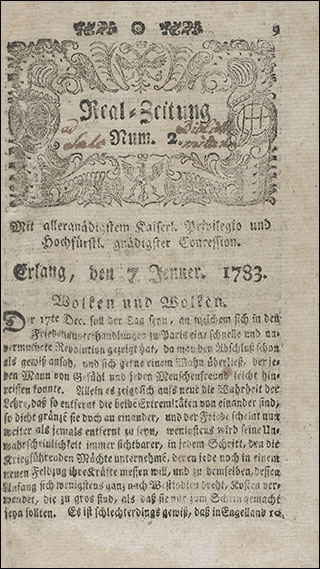 9
Real-Zeitung
Num. 2.
Mit allergnädigstem Kaiserl. Privilegio und
Hochfürstl. gnädigster Concession.
Erlang, den 7 Jenner. 1783.
Wolken und Wolken.
Der 17te Dec. soll der Tag seyn, an welchem sich in den
Friedensunterhandlungen zu Paris eine schnelle und un-
vermuthete Revolution gezeigt hat, da man den Abschluß schon
als gewiß ansah, und sich gerne einem Wahn überließ, der je-
den Mann von Gefühl und jeden Menschenfreund leicht hin-
reissen konnte. Allein es zeigt sich aufs neue die Wahrheit der
Lehre, daß so entfernt die beide Extremitäten von einander sind,
so dicht gränze sie doch an einander, und der Friede scheint nun
weiter als jemals entfernt zu seyn, wenigstens wird seine Un-
wahrscheinlichkeit immer sichtbarer, in jedem Schritt, den die
Kriegführenden Mächte unternehmen, deren jede noch in einem
neuen Feldzug ihre Kräfte messen will, und zu demselben, dessen
Anfang sich wenigstens ganz nach Westindien dreht, Kosten ver-
wendet, die zu gros sind, als daß sie nur zum Schein gemacht
seyn solten. Es ist schlechterdings gewiß, daß in Engelland 10